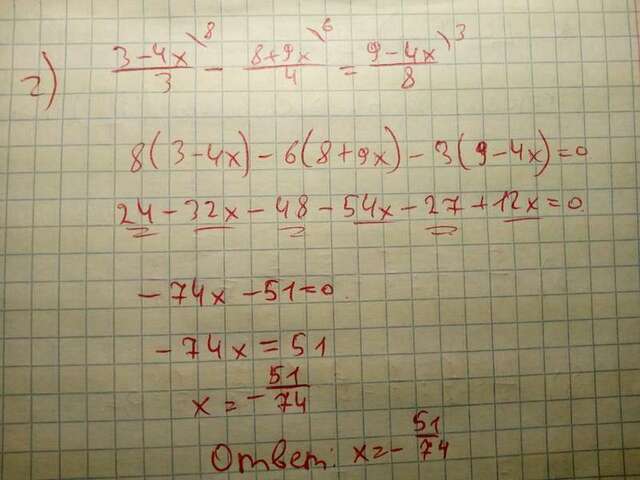 г) (3-4x)/3 \8 - (8+9x)/4 \6 = (9-4x)/8 \3
8(3-4x)-6(8+9x)-3(9-4x)=0
24-32x-48-54x-27+12x=0
-74x-51=0.
-74x=51
x=-51/74
Ответ: x=-51/74